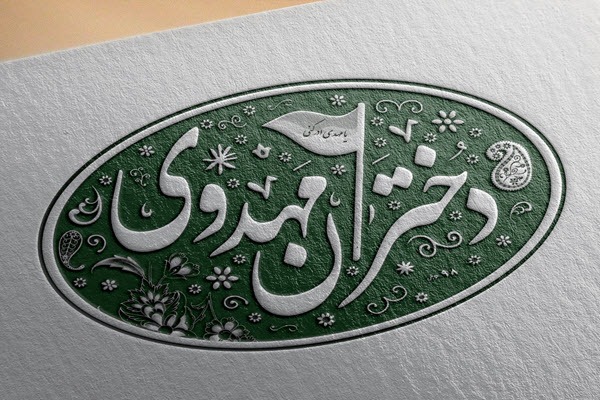 دختران مهدوی
یا مهدی ادرکنی